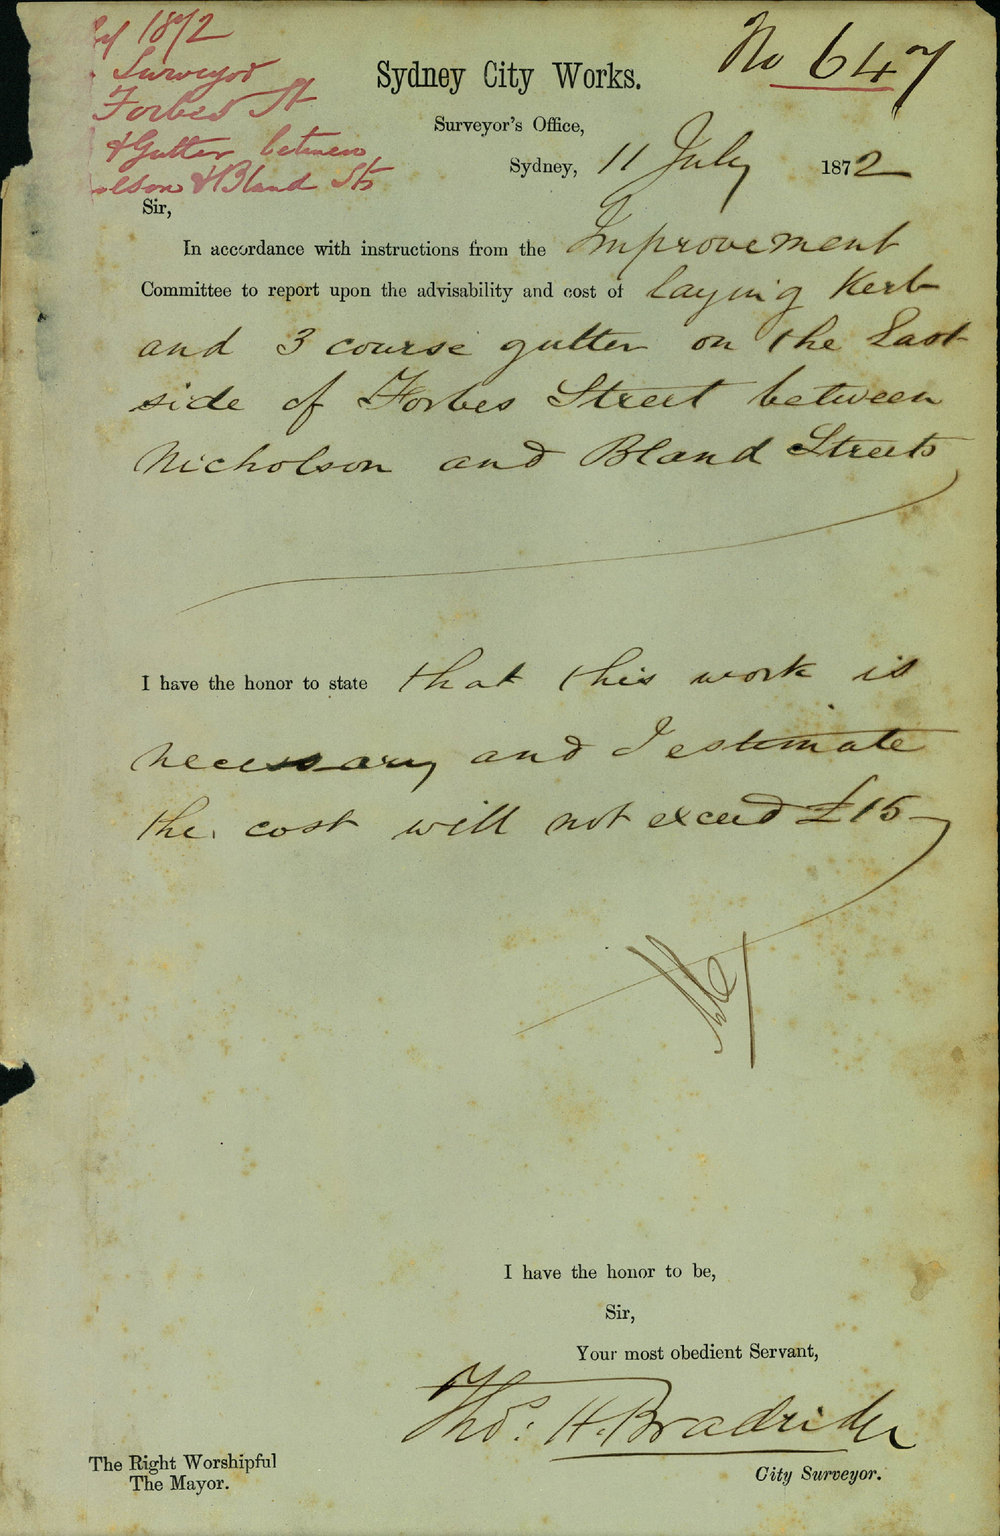 1872
Surveyor
Forbes St
& Gutter between
olson & Bland Sts
No 647
Sydney City Works.
Surveyor's Office,
Sydney, 11 July 1872
Sir,
In accordance with instructions from the Improvement
Committee to report upon the advisability and cost of laying Kerb
and 3 course gutter on the East
side of Forbes Street between
Nicholson and Bland Streets
I have the honor to state that this work is
necessary and I estimate
the cost will not exceed £15
I have the honor to be,
Sir,
Your most obedient Servant,
Thos. H. Bradridge
City Surveyor.
The Right Worshipful
The Mayor.